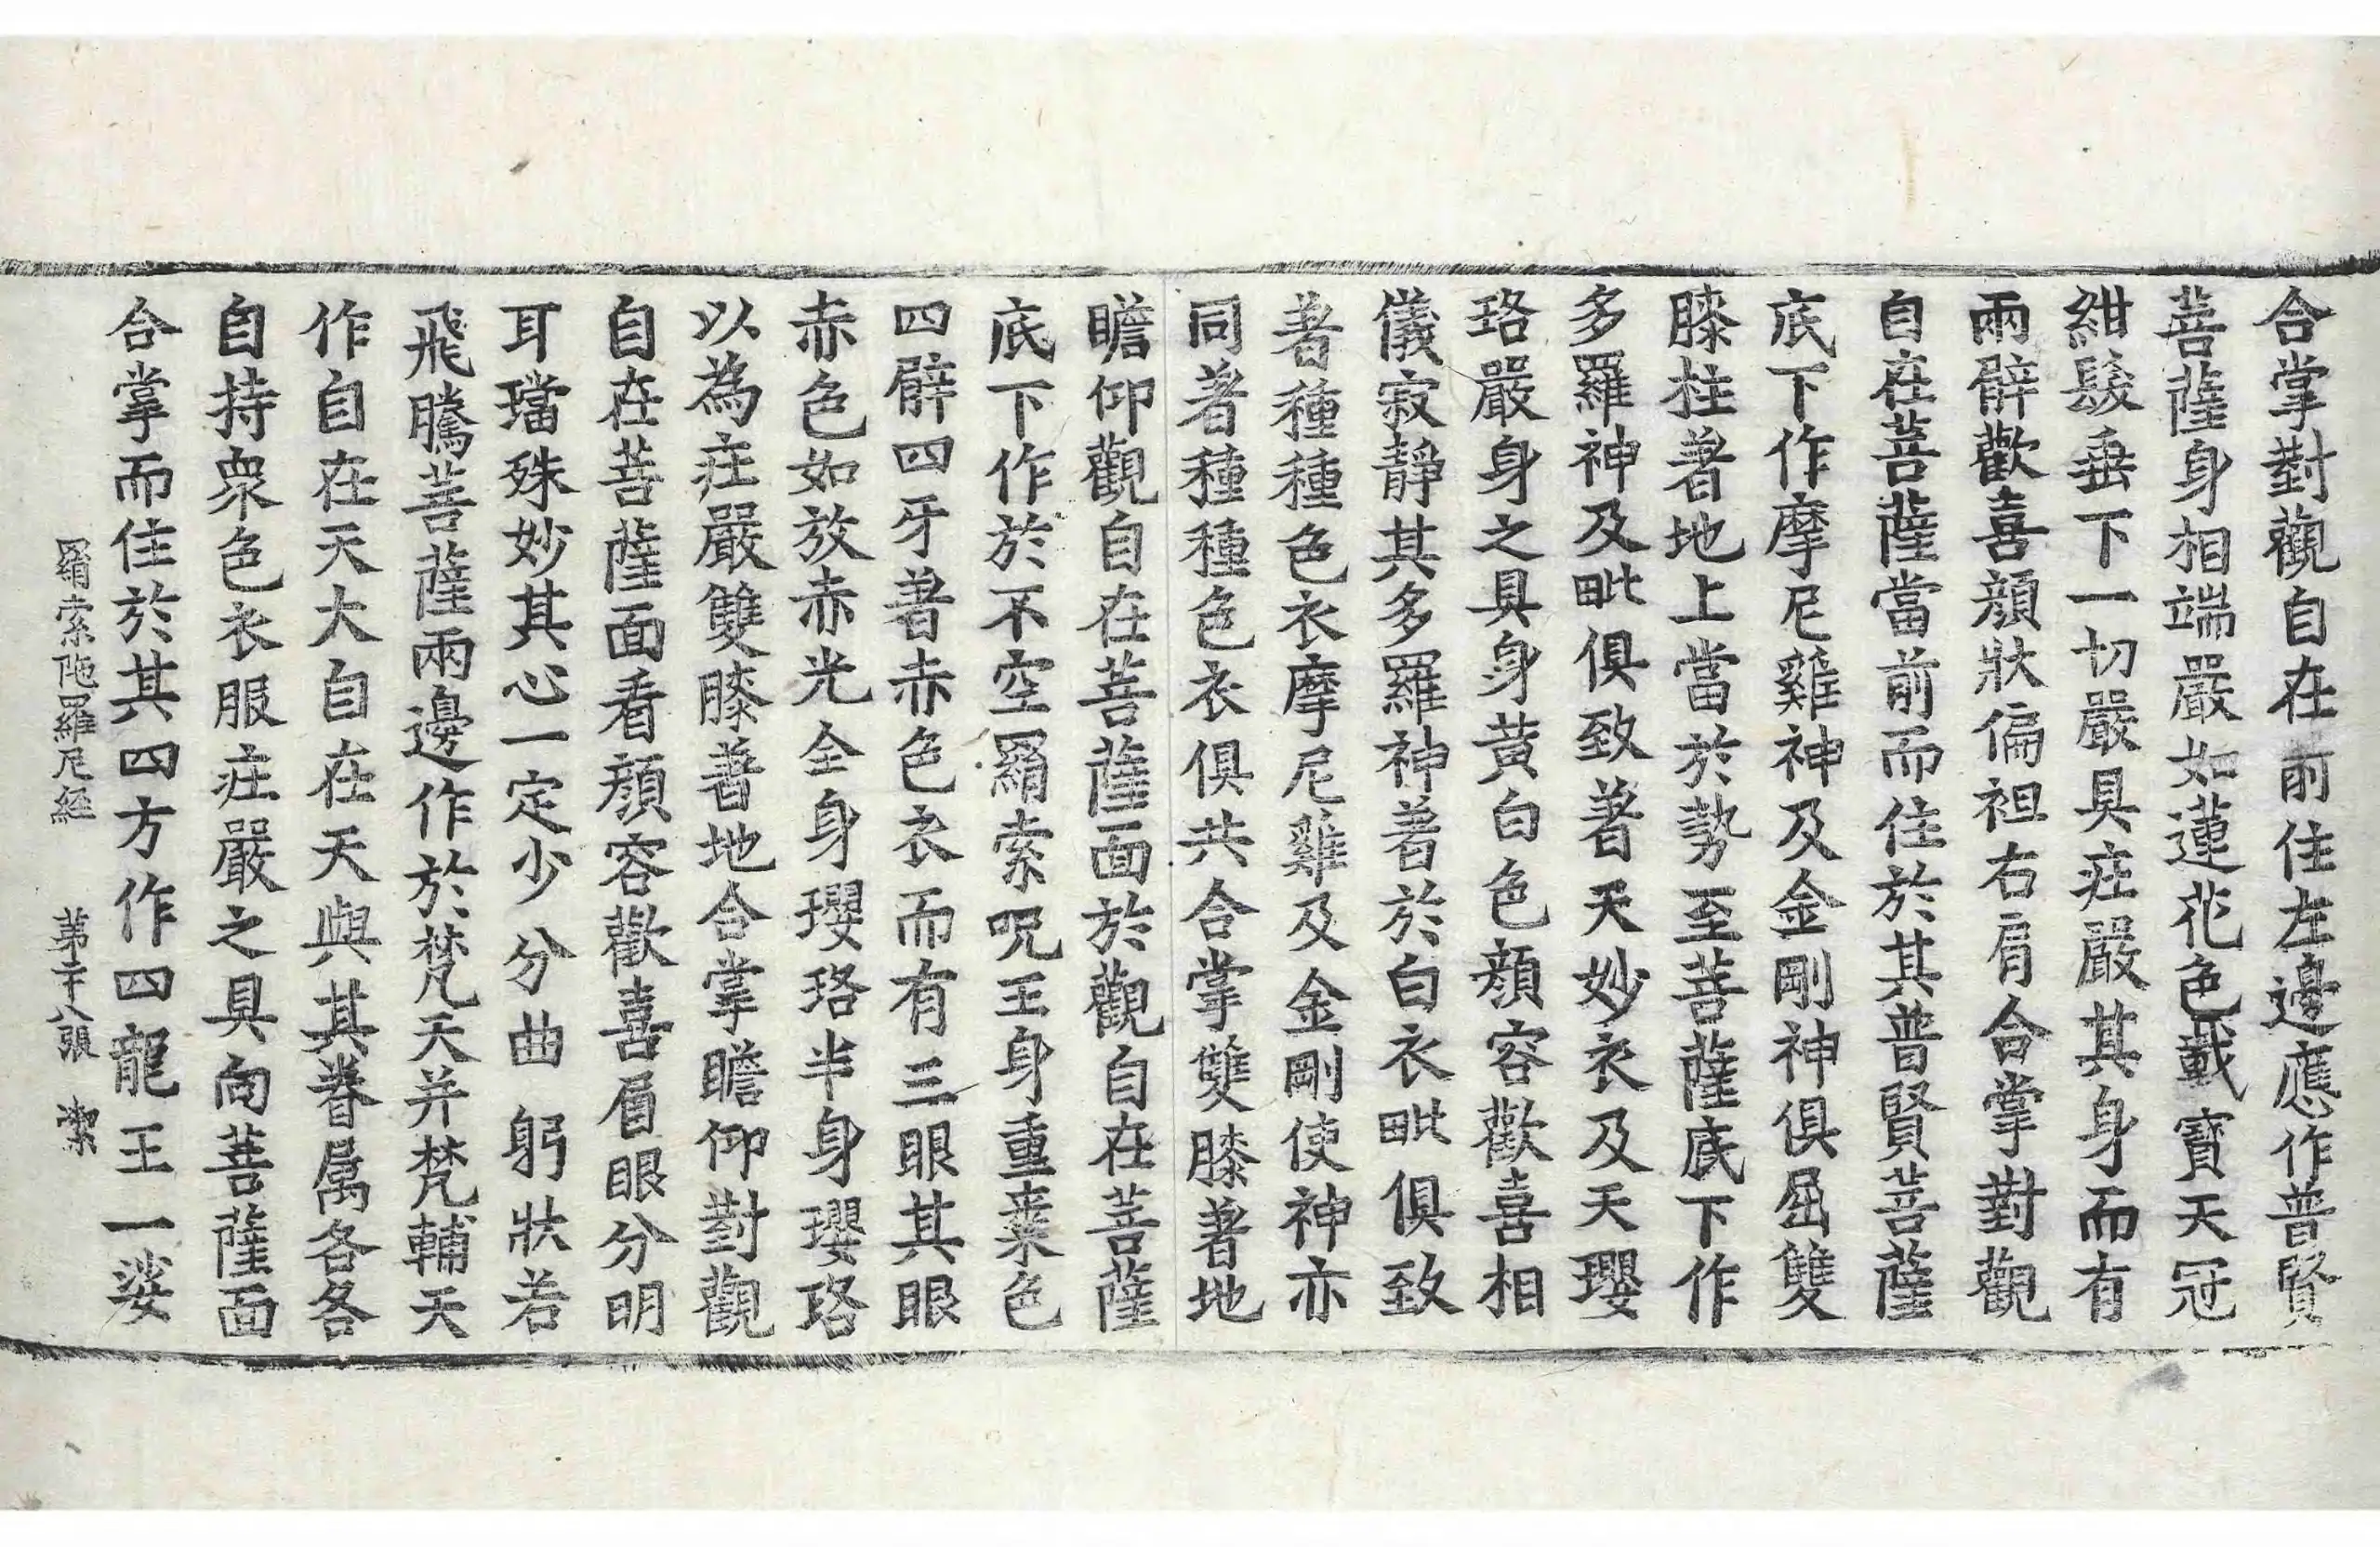 合掌對觀自在前住左邊應作普賢
菩薩身相端嚴如蓮花色戴寶天冠
紺髮垂下一切嚴具莊嚴其身而有
兩臂歡喜顏狀偏袒右肩合掌對觀
自在菩薩當前而住於其普賢菩薩
底下作摩尼雞神及金剛神俱屈雙
膝柱著地上當於勢至菩薩底下作
多羅神及毗俱致著天妙衣及天瓔
珞嚴身之具身黃白色顏容歡喜相
儀寂靜其多羅神著於白衣毗俱致
著種種色衣摩尼雞及金剛使神亦
同著種種色衣俱共合掌雙膝著地
瞻仰觀自在菩薩面於觀自在菩薩
底下作於不空羂索呪王身重棗色
四臂四牙著赤色衣而有三眼其眼
赤色如放赤光全身瓔珞半身瓔珞
以為莊嚴雙膝著地合掌瞻仰對觀
自在菩薩面看顏容歡喜眉眼分明
耳璫殊妙其心一定少分曲躬狀若
飛騰菩薩兩邊作於梵天并梵輔天
作自在天大自在天與其眷属各各
自持衆色衣服莊嚴之具向菩薩面
合掌而住於其四方作四龍王一娑
羂索陁羅尼経 苐二十八張 潔